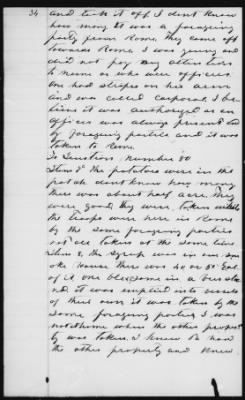 34
and took it off I dont know
how many it was a foraging
party from Rome they came off
towards Rome I was young and
did not pay any attention
to name or who were officers
One had stripes on his arm
and was called Corporal I be
lieve it was authorized as an
officer was always present
by foraging parties and it was
taken to Rome
To Question Number 80
Item 5 the potatoes were in the
patch dont know how many
there was about half acre they
were good, they were taken while
the troops were here in Rome
by the same foraging parties
not all taken at the same time
Item 8, the syrup was in our smo
oke House there was 40 or 50 Gal
of it one
ed it was emptied into vessels
of their own it was taken by the
same foraging parties I was
not at home when the other proper
ty was taken. I knew Pa had
the other property and knew